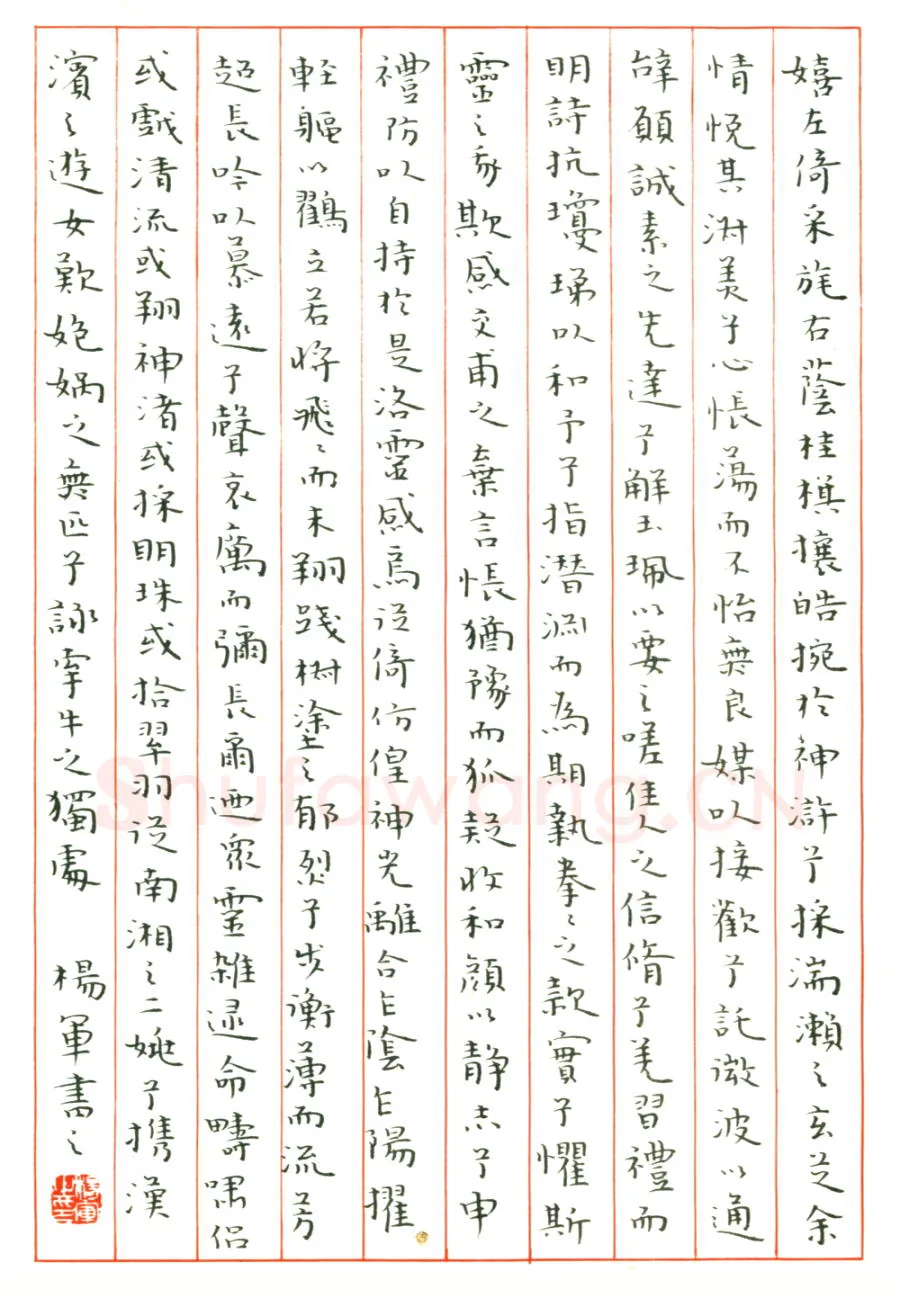 嬉左倚采旄右蔭桂棋攘皓捥於神滸兮採湍瀨之玄芝余
情悅其淑美兮心悵蕩而不怡無良媒以接歡兮託微波以通
辭願誠素之先達兮解玉珮以要之嗟佳人之信脩兮羌習禮而
明詩抗瓊珶以和予兮指潛淵而為期執拳〻之款實兮懼斯
靈之我欺感交甫之棄言悵猶豫而狐疑收和顏以靜志兮申
禮防以自持於是洛靈感焉從倚仿偟神光離合乍陰乍陽擢
輕軀以鸖立若将飛〻而未翔踐椒塗之郁烈兮步衡薄而流芳
超長吟以慕遠兮聲哀厲而彌長爾迺眾靈雜遝命疇嘯侶
或戲清流或翔神渚或採明珠或拾翠羽從南湘之二姚兮携漢
濱之遊女歎媧之無匹兮詠牽牛之獨處 楊軍書之
Shufawang.CN